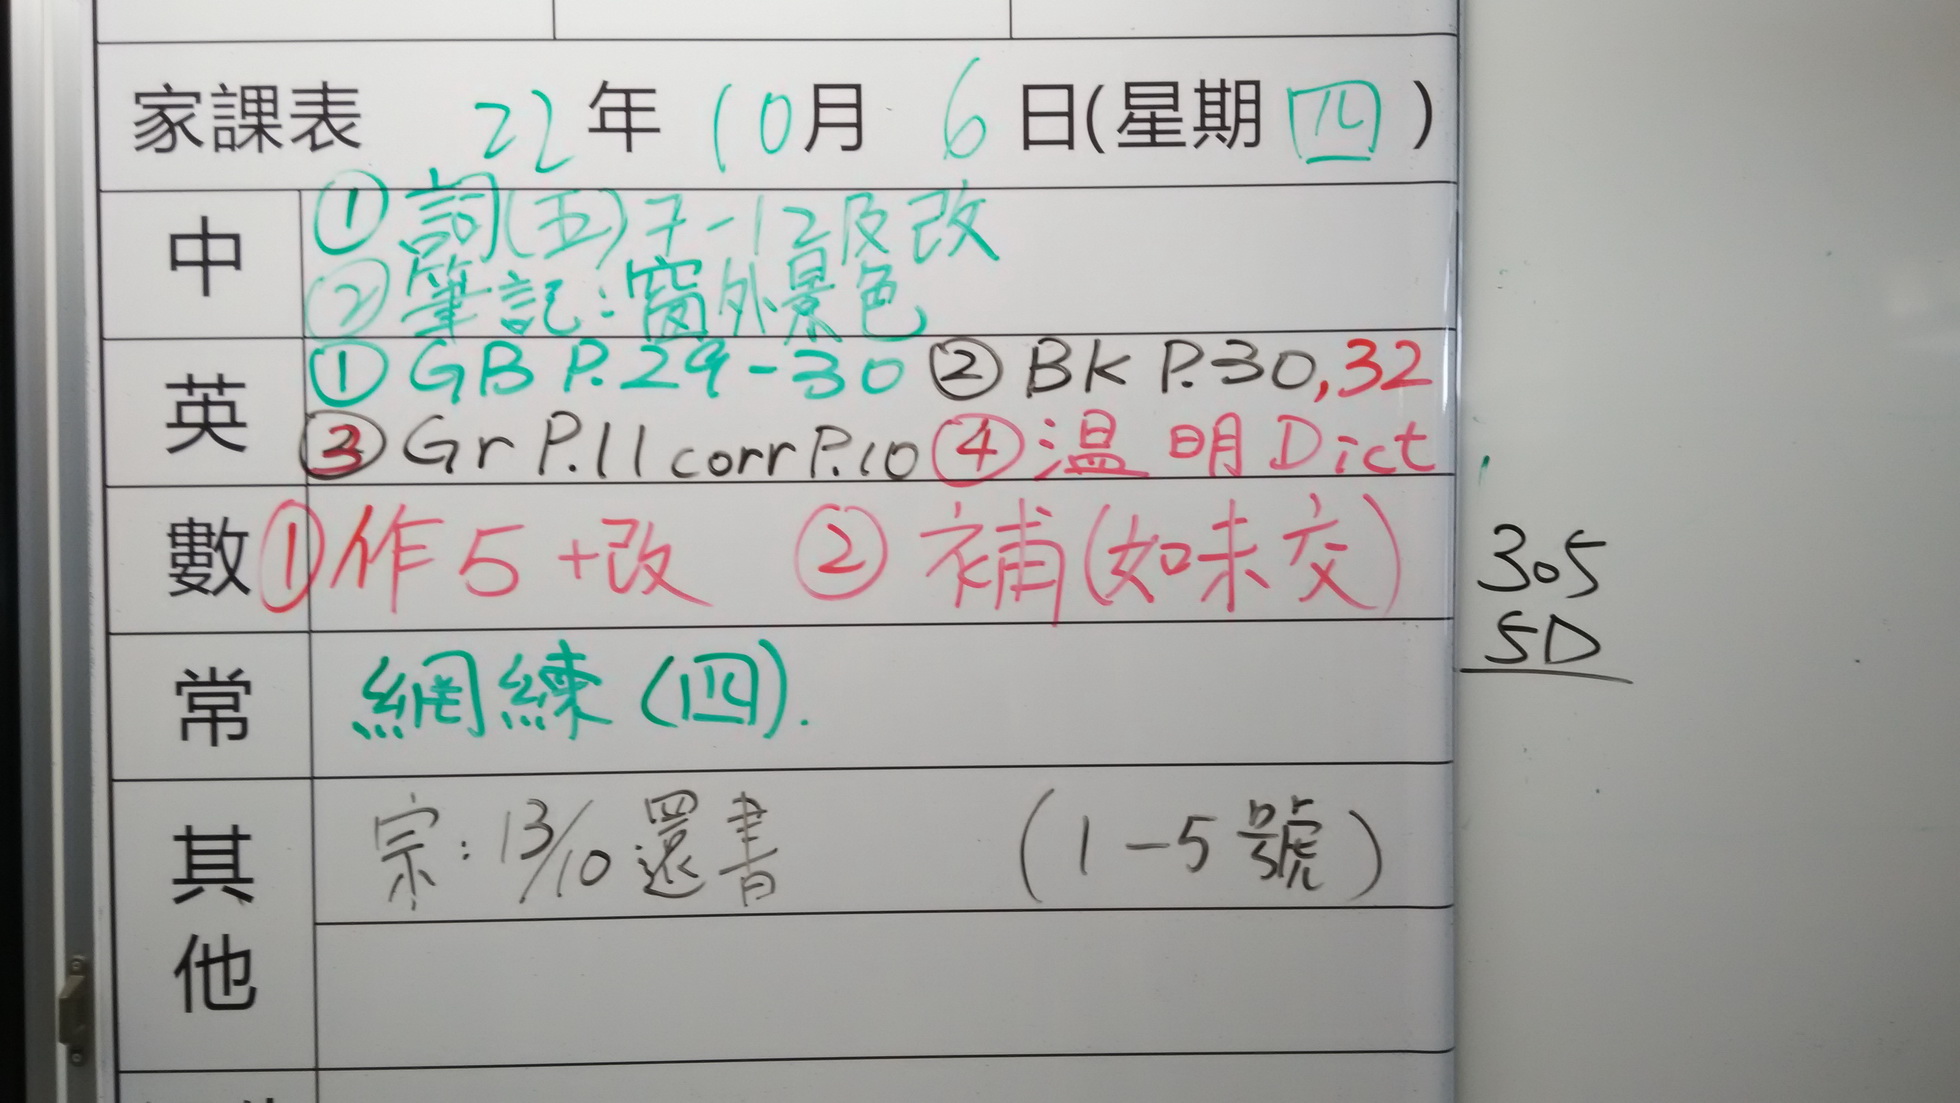 家課表 22年10月6日(星期四)
中 ①詞(五)7-12及改
②筆記:窗外景色
英 ①GB P.29-30 ②BK P.30,32
③Gr P.11 corr P.10 ④溫 明Dict
數 ①作5+改 ②補(如未交)
305
5D
常 網練(四).
其他 宗:13/10還書 (1-5號)